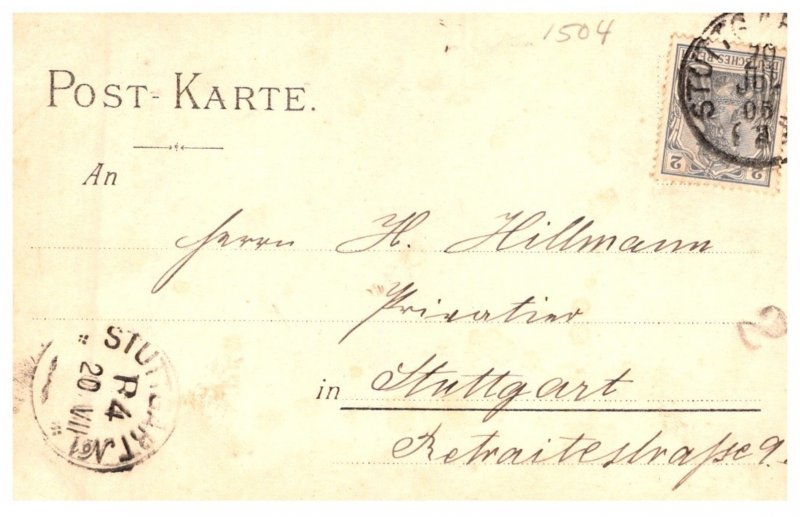 1504
STUTTGART
20
JUL
05
DEUTSCHES REICH
2 2
POST-KARTE.
An
Herrn H. Hillmann
Privatier
2
in Stuttgart
Retraitestraße 9.
STUTTGART №1
R4
20.VII